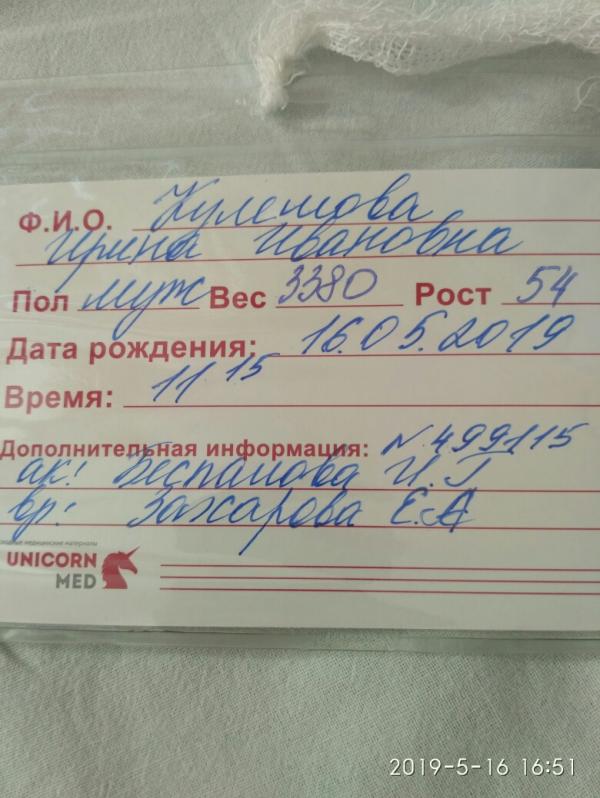 Ф.И.О. Кулешова
Ирина Ивановна
Пол муж Вес 3380 Рост 54
Дата рождения: 16.05.2019
Время: 11 15
Дополнительная информация: N. 499115
ак: Беспалова И.Г
вр: Захарова Е.А
медицинские материалы
UNICORN
MED
2019-5-16 16:51